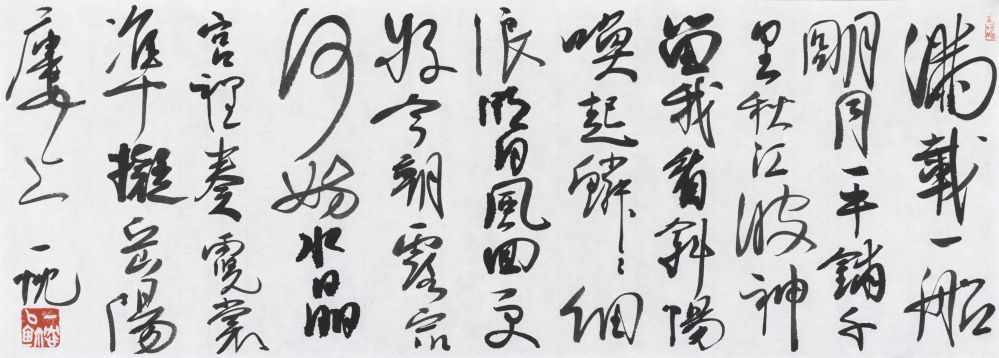 滿載一船
明月平鋪千
里秋江波神
留我看斜陽
喚起鱗々細
浪明日風回更
好今朝露宿
何妨水晶
宮裡奏霓裳
準擬岳陽
樓上